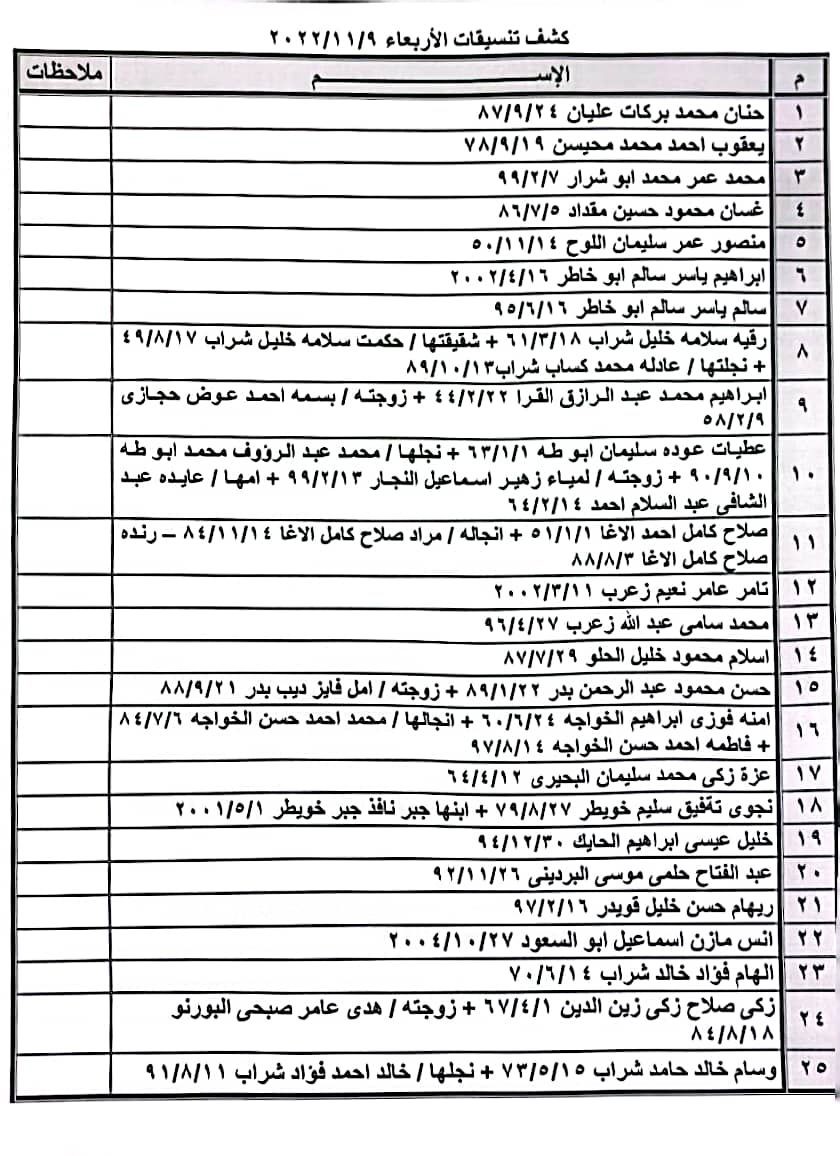 كشف تنسيقات الأربعاء ٢٠٢٢/١١/٩
م الإســـــــم ملاحظات
١ حنان محمد بركات عليان ٨٧/٩/٢٤
٢ يعقوب احمد محمد محيسن ٧٨/٩/١٩
٣ محمد عمر محمد ابو شرار ٩٩/٢/٧
٤ غسان محمود حسين مقداد ٨٦/٧/٥
٥ منصور عمر سليمان اللوح ٥٠/١١/١٤
٦ ابراهيم ياسر سالم ابو خاطر ٢٠٠٢/٤/١٦
٧ سالم ياسر سالم ابو خاطر ٩٥/٦/١٦
٨ رقيه سلامه خليل شراب ٦١/٣/١٨ + شقيقتها / حكمت سلامه خليل شراب ٤٩/٨/١٧
+ نجلتها / عادله محمد كساب شراب ٨٩/١٠/١٣
٩ ابراهيم محمد عبد الرازق القرا ٤٤/٢/٢٢ + زوجته / بسمه احمد عوض حجازى
٥٨/٢/٩
١٠ عطيات عوده سليمان ابو طه ٦٣/١/١ + نجلها / محمد عبد الرؤوف محمد ابو طه
٩٠/٩/١٠ + زوجته / لمياء زهير اسماعيل النجار ٩٩/٢/١٣ + امها / عايده عبد
الشافى عبد السلام احمد ٦٤/٢/١٤
١١ صلاح كامل احمد الاغا ٥١/١/١ + انجاله / مراد صلاح كامل الاغا ٨٤/١١/١٤ – رنده
صلاح كامل الاغا ٨٨/٨/٣
١٢ تامر عامر نعيم زعرب ٢٠٠٢/٣/١١
١٣ محمد سامى عبد الله زعرب ٩٦/٤/٢٧
١٤ اسلام محمود خليل الحلو ٨٧/٧/٢٩
١٥ حسن محمود عبد الرحمن بدر ٨٩/١/٢٢ + زوجته / امل فايز ديب بدر ٨٨/٩/٢١
١٦ امنه فوزى ابراهيم الخواجه ٦٠/٦/٢٤ + انجالها / محمد احمد حسن الخواجه ٨٤/٧/٦
+ فاطمه احمد حسن الخواجه ٩٧/٨/١٤
١٧ عزة زكى محمد سليمان البحيرى ٦٤/٤/١٢
١٨ نجوى توفيق سليم خويطر ٧٩/٨/٢٧ + ابنها جبر نافذ جبر خويطر ٢٠٠١/٥/١
١٩ خليل عيسى ابراهيم الحايك ٩٤/١٢/٣٠
٢٠ عبد الفتاح حلمى موسى البردينى ٩٢/١١/٢٦
٢١ ريهام حسن خليل قويدر ٩٧/٢/١٦
٢٢ انس مازن اسماعيل ابو السعود ٢٠٠٤/١٠/٢٧
٢٣ الهام فؤاد خالد شراب ٧٠/٦/١٤
٢٤ زكى صلاح زكى زين الدين ٦٧/٤/١ + زوجته / هدى عامر صبحى البورنو
٨٤/٨/١٨
٢٥ وسام خالد حامد شراب ٧٣/٥/١٥ + نجلها / خالد احمد فؤاد شراب ٩١/٨/١١